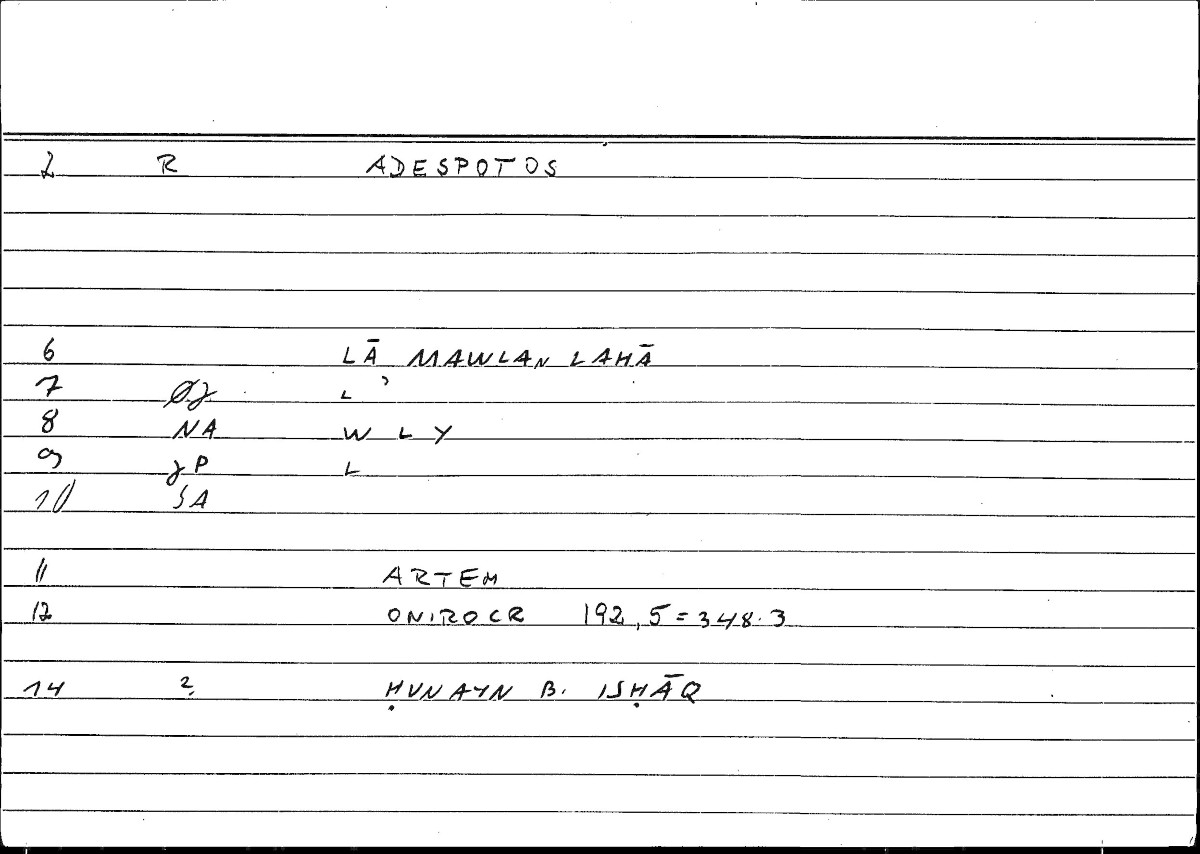 2 R ADESPOTOS
6 LĀ MAWLAN LAHĀ
7 L ʾ
8 NA W L Y
9 P L
10 SA
11 ARTEM
12 ONIROCR 192,5=348.3
14 2 ḤUNAYN B. ISḤĀQ